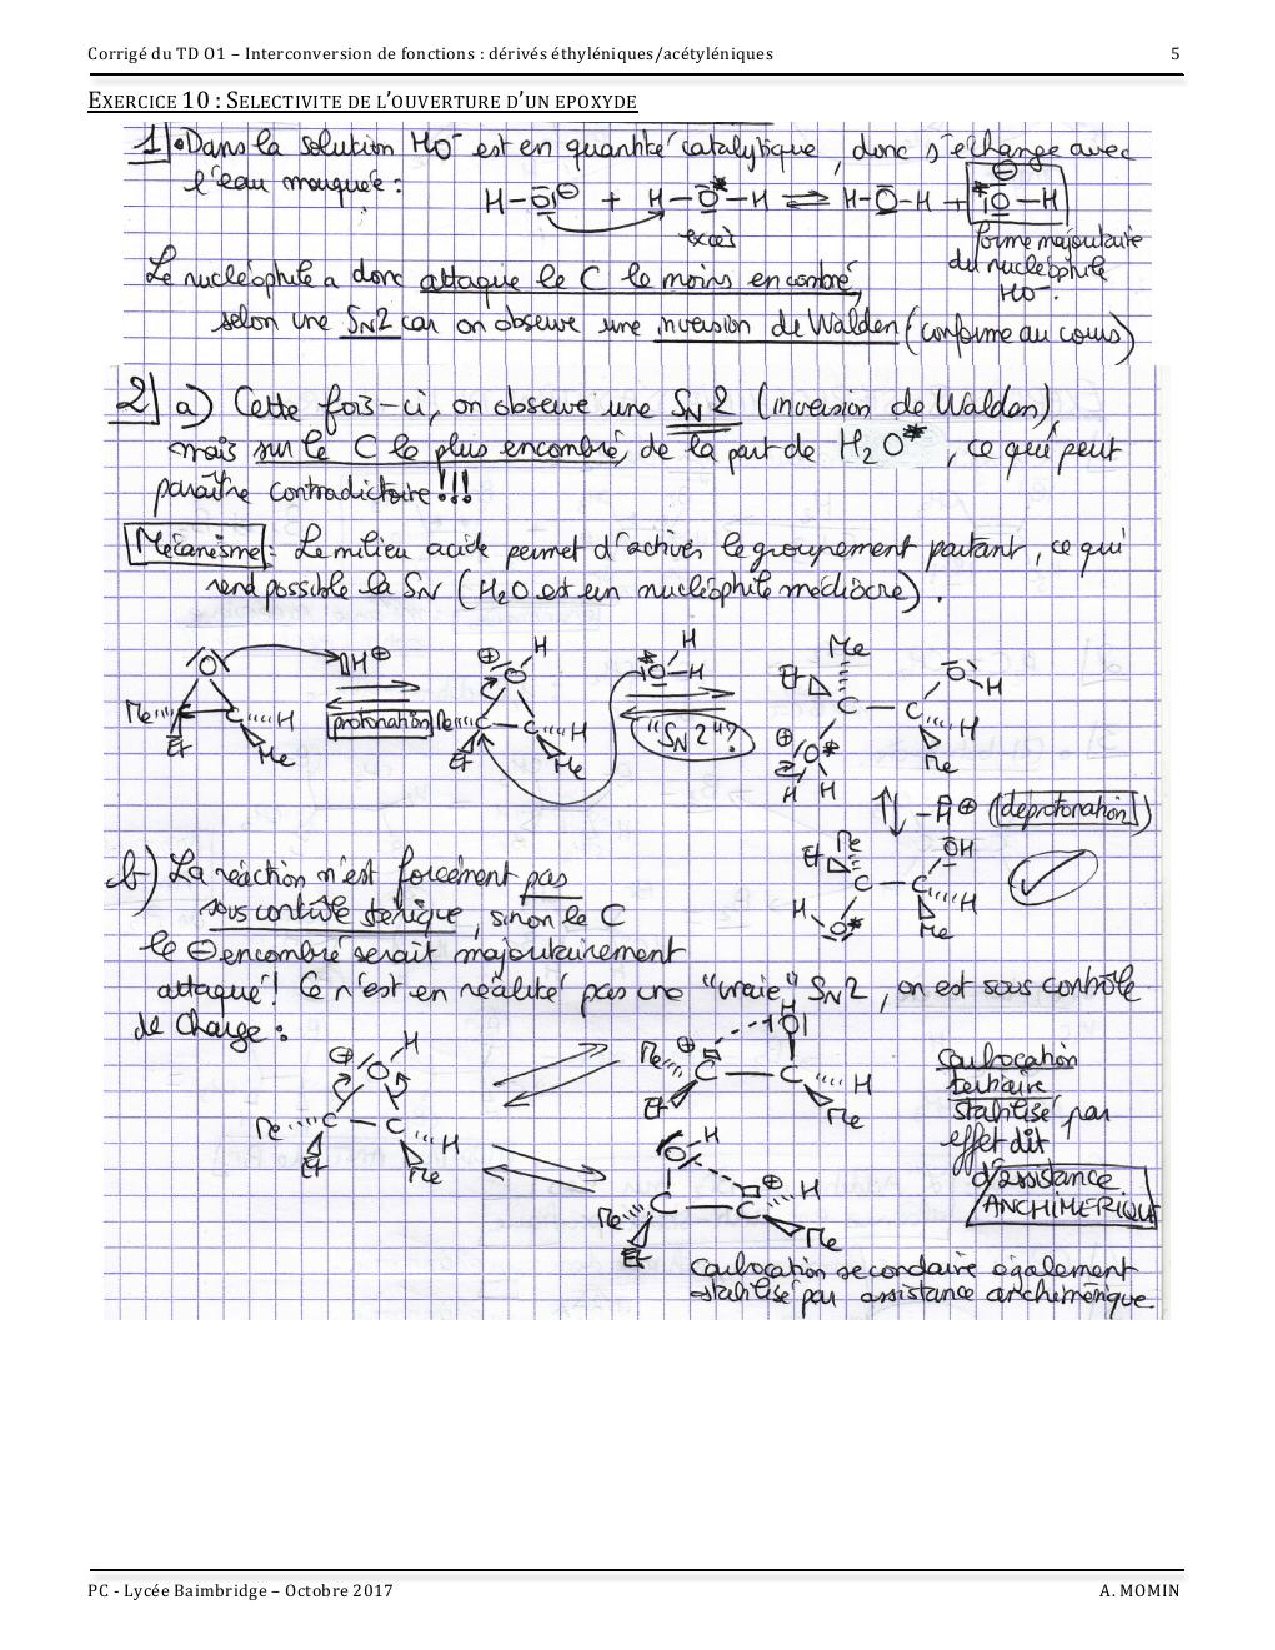 Corrigé du TD O1 – Interconversion de fonctions : dérivés éthyléniques/acétyléniques 5
EXERCICE 10 : SELECTIVITE DE L'OUVERTURE D'UN EPOXYDE
1) • Dans la solution HO⁻ est en quantité catalytique, donc s'échange avec
l'eau marquée :
H–O⊖ + H–O*–H ⇌ H–O–H + *O⊖–H
excès
forme majoritaire
du nucléophile
HO⁻.
Le nucléophile a donc attaqué le C le moins encombré,
selon une SN2 car on observe une inversion de Walden (conforme au cours)
2) a) Cette fois-ci, on observe une SN2 (inversion de Walden),
mais sur le C le plus encombré, de la part de H2O*, ce qui peut
paraître contradictoire !!!
Mécanisme : Le milieu acide permet d'activer le groupement partant, ce qui
rend possible la SN (H2O est un nucléophile médiocre).
O H⊕ ⊕O H *O H H Me Et O H
Me C C H protonation Me C C H "SN2"? C C H
Et Me Et Me ⊕O* H H Me
–H⊕ (déprotonation)
Me Et OH
C C H
H O* Me
b) La réaction n'est forcément pas
sous contrôle stérique, sinon le C
le ⊖ encombré serait majoritairement
attaqué ! Ce n'est en réalité pas une "vraie" SN2, on est sous contrôle
de charge :
⊕O H
Me C C H
Et Me
H O
Me ⊕ C C H
Et Me
carbocation
tertiaire
stabilisé par
effet dit
d'assistance
ANCHIMERIQUE
O H
Me C C ⊕ H
Et Me
carbocation secondaire également
stabilisé par assistance anchimérique
PC - Lycée Baimbridge – Octobre 2017 A. MOMIN